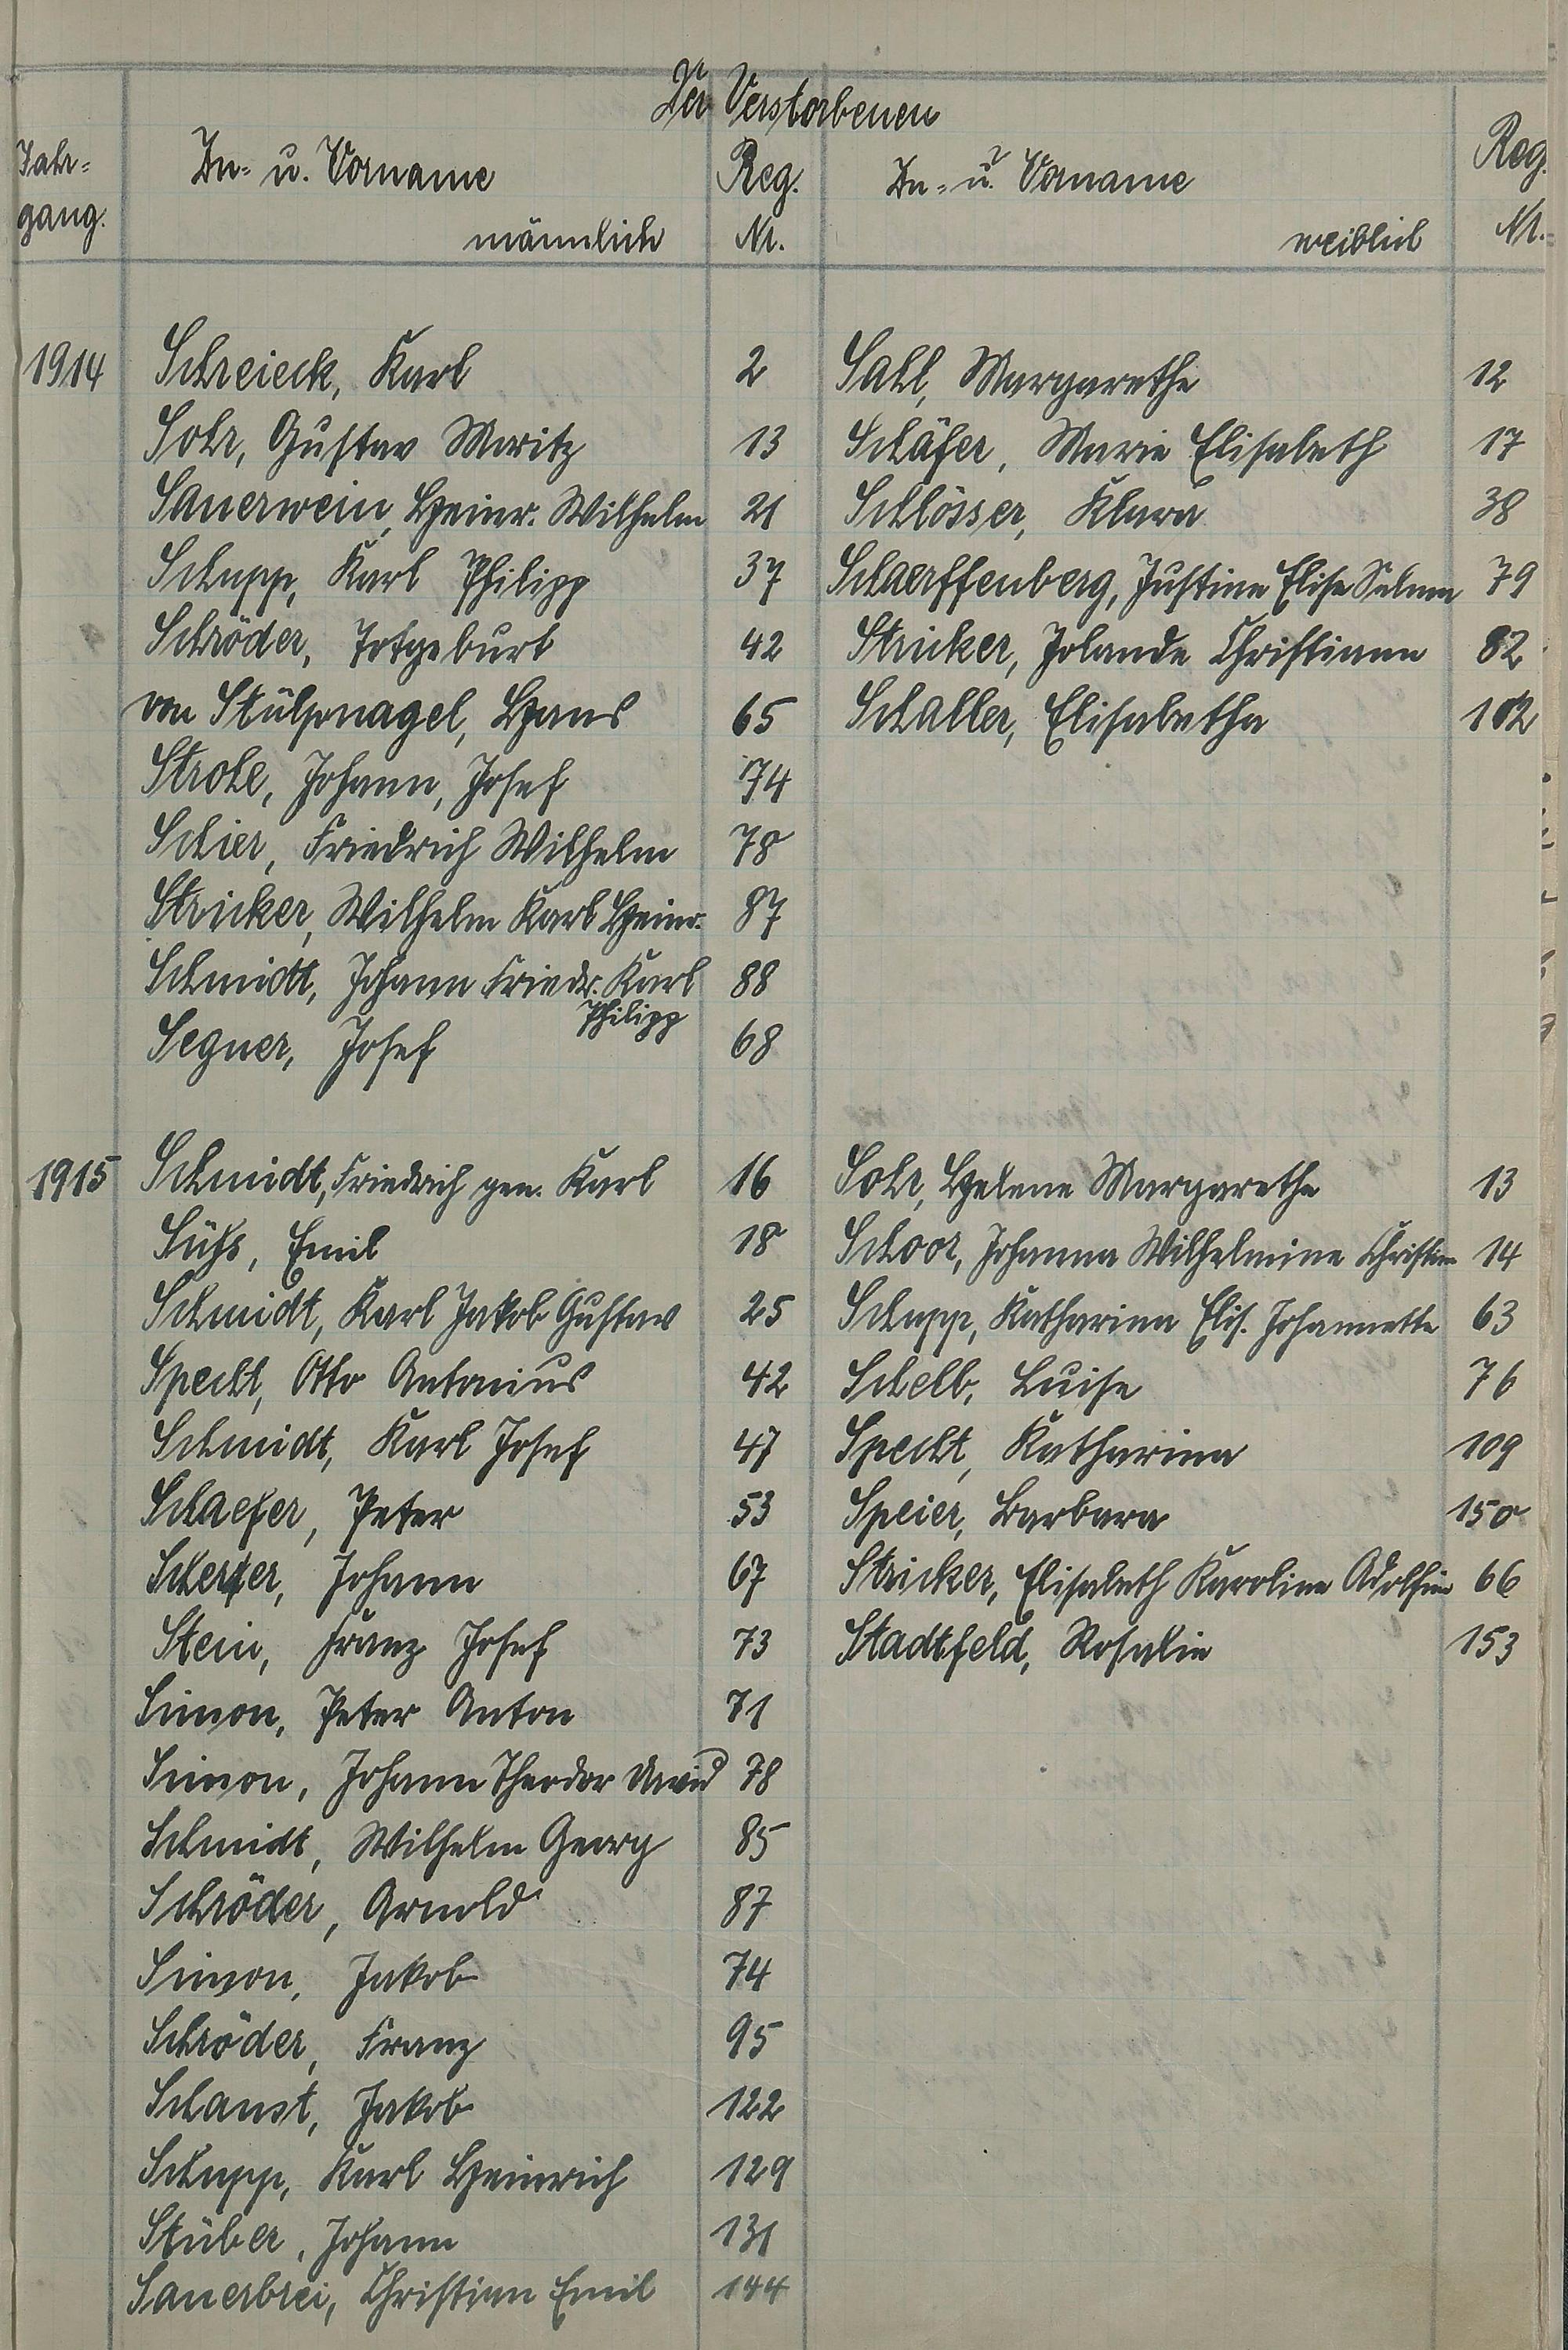 Der Verstorbenen
Jahr- Zu- u. Vorname Reg. Zu- u. Vorname Reg.
gang. männlich Nr. weiblich Nr.
1914 Schreieck, Karl 2 Sahl, Margarethe 12
Sohr, Gustav Moritz 13 Schäfer, Marie Elisabeth 17
Sauerwein, Heinr. Wilhelm 21 Schlösser, Klara 38
Schupp, Karl Philipp 37 Schaerffenberg, Justine Elise Selma 79
Schröder, Totgeburt 42 Stricker, Jolande Christiane 82
von Stülpnagel, Hans 65 Schaller, Elisabetha 102
Strohe, Johann, Josef 74
Schier, Friedrich Wilhelm 78
Stricker, Wilhelm Karl Heinr. 87
Schmidt, Johann Friedr. Karl 88
Philipp
Segner, Josef 68
1915 Schmidt, Friedrich gen. Karl 16 Sohr, Helene Margarethe 13
Süß, Emil 18 Schoor, Johanna Wilhelmine Christine 14
Schmidt, Karl Jakob Gustav 25 Schupp, Katharina Elis. Johannette 63
Specht, Otto Antonius 42 Schelb, Luise 76
Schmidt, Karl Josef 47 Specht, Katharina 109
Schaefer, Peter 53 Speier, Barbara 150
Johann 67 Stricker, Elisabeth Karoline Adolfine 66
Stein, Franz Josef 73 Stadtfeld, Rosalie 153
Simon, Peter Anton 71
Simon, Johann Theodor David 78
Schmidt, Wilhelm Georg 85
Schröder, Arnold 87
Simon, Jakob 74
Schröder, Franz 95
Schanst, Jakob 122
Schupp, Karl Heinrich 129
Stüber, Johann 131
Sauerbrei, Christian Emil 144